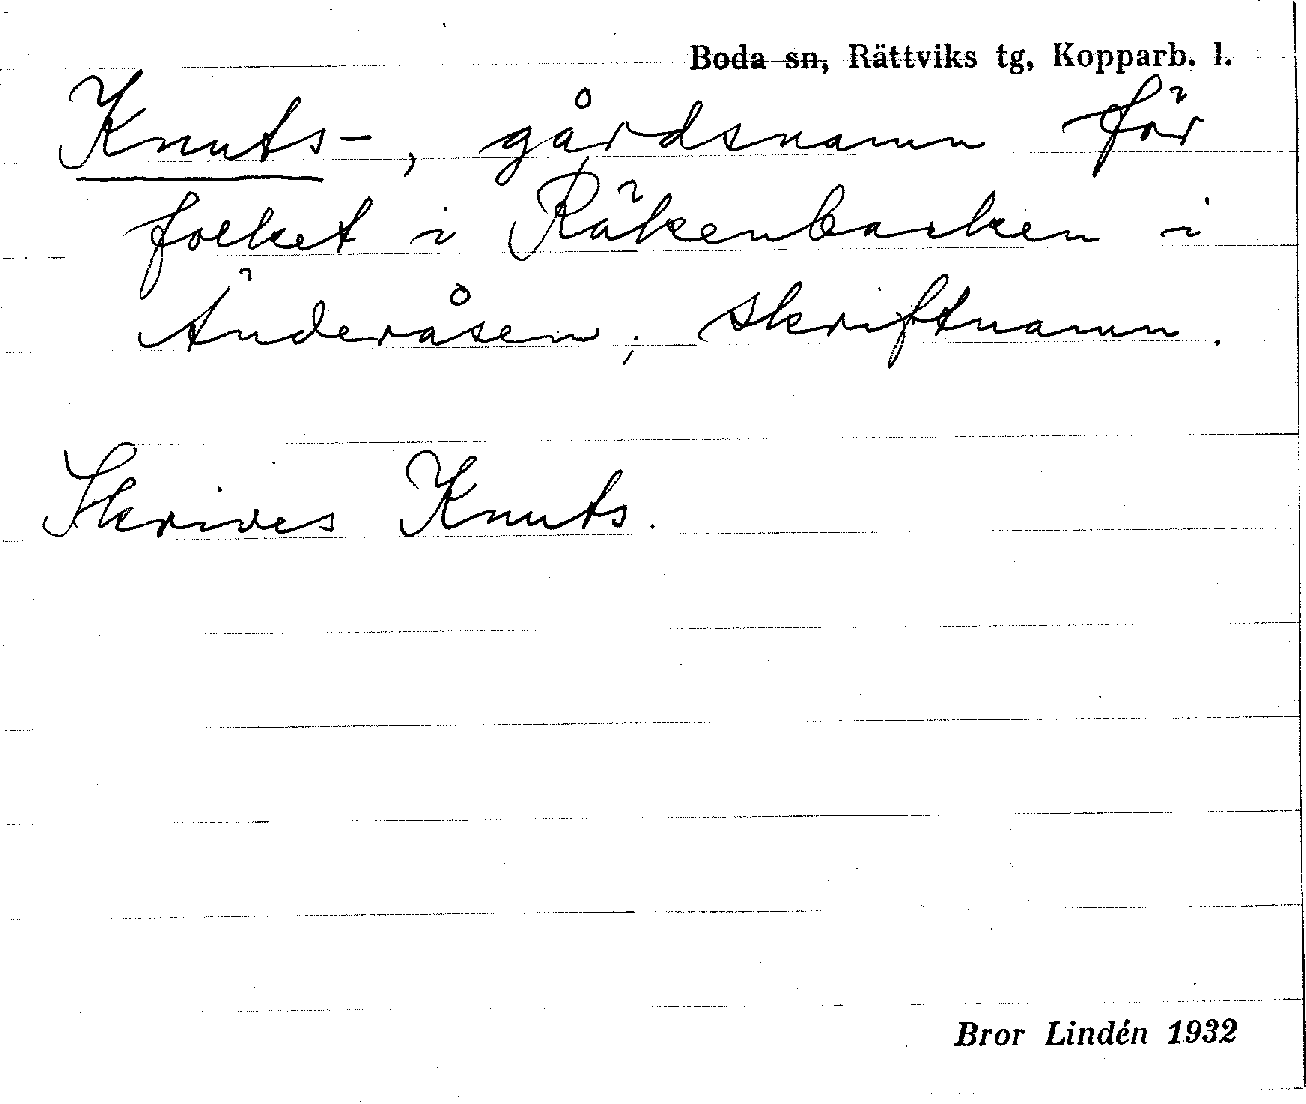 Boda sn, Rättviks tg, Kopparb. l.
Knuts-, gårdsnamn för
folket i Räkenbacken i
Änderåsen, skriftnamn.
Skrives Knuts.
Bror Lindén 1932